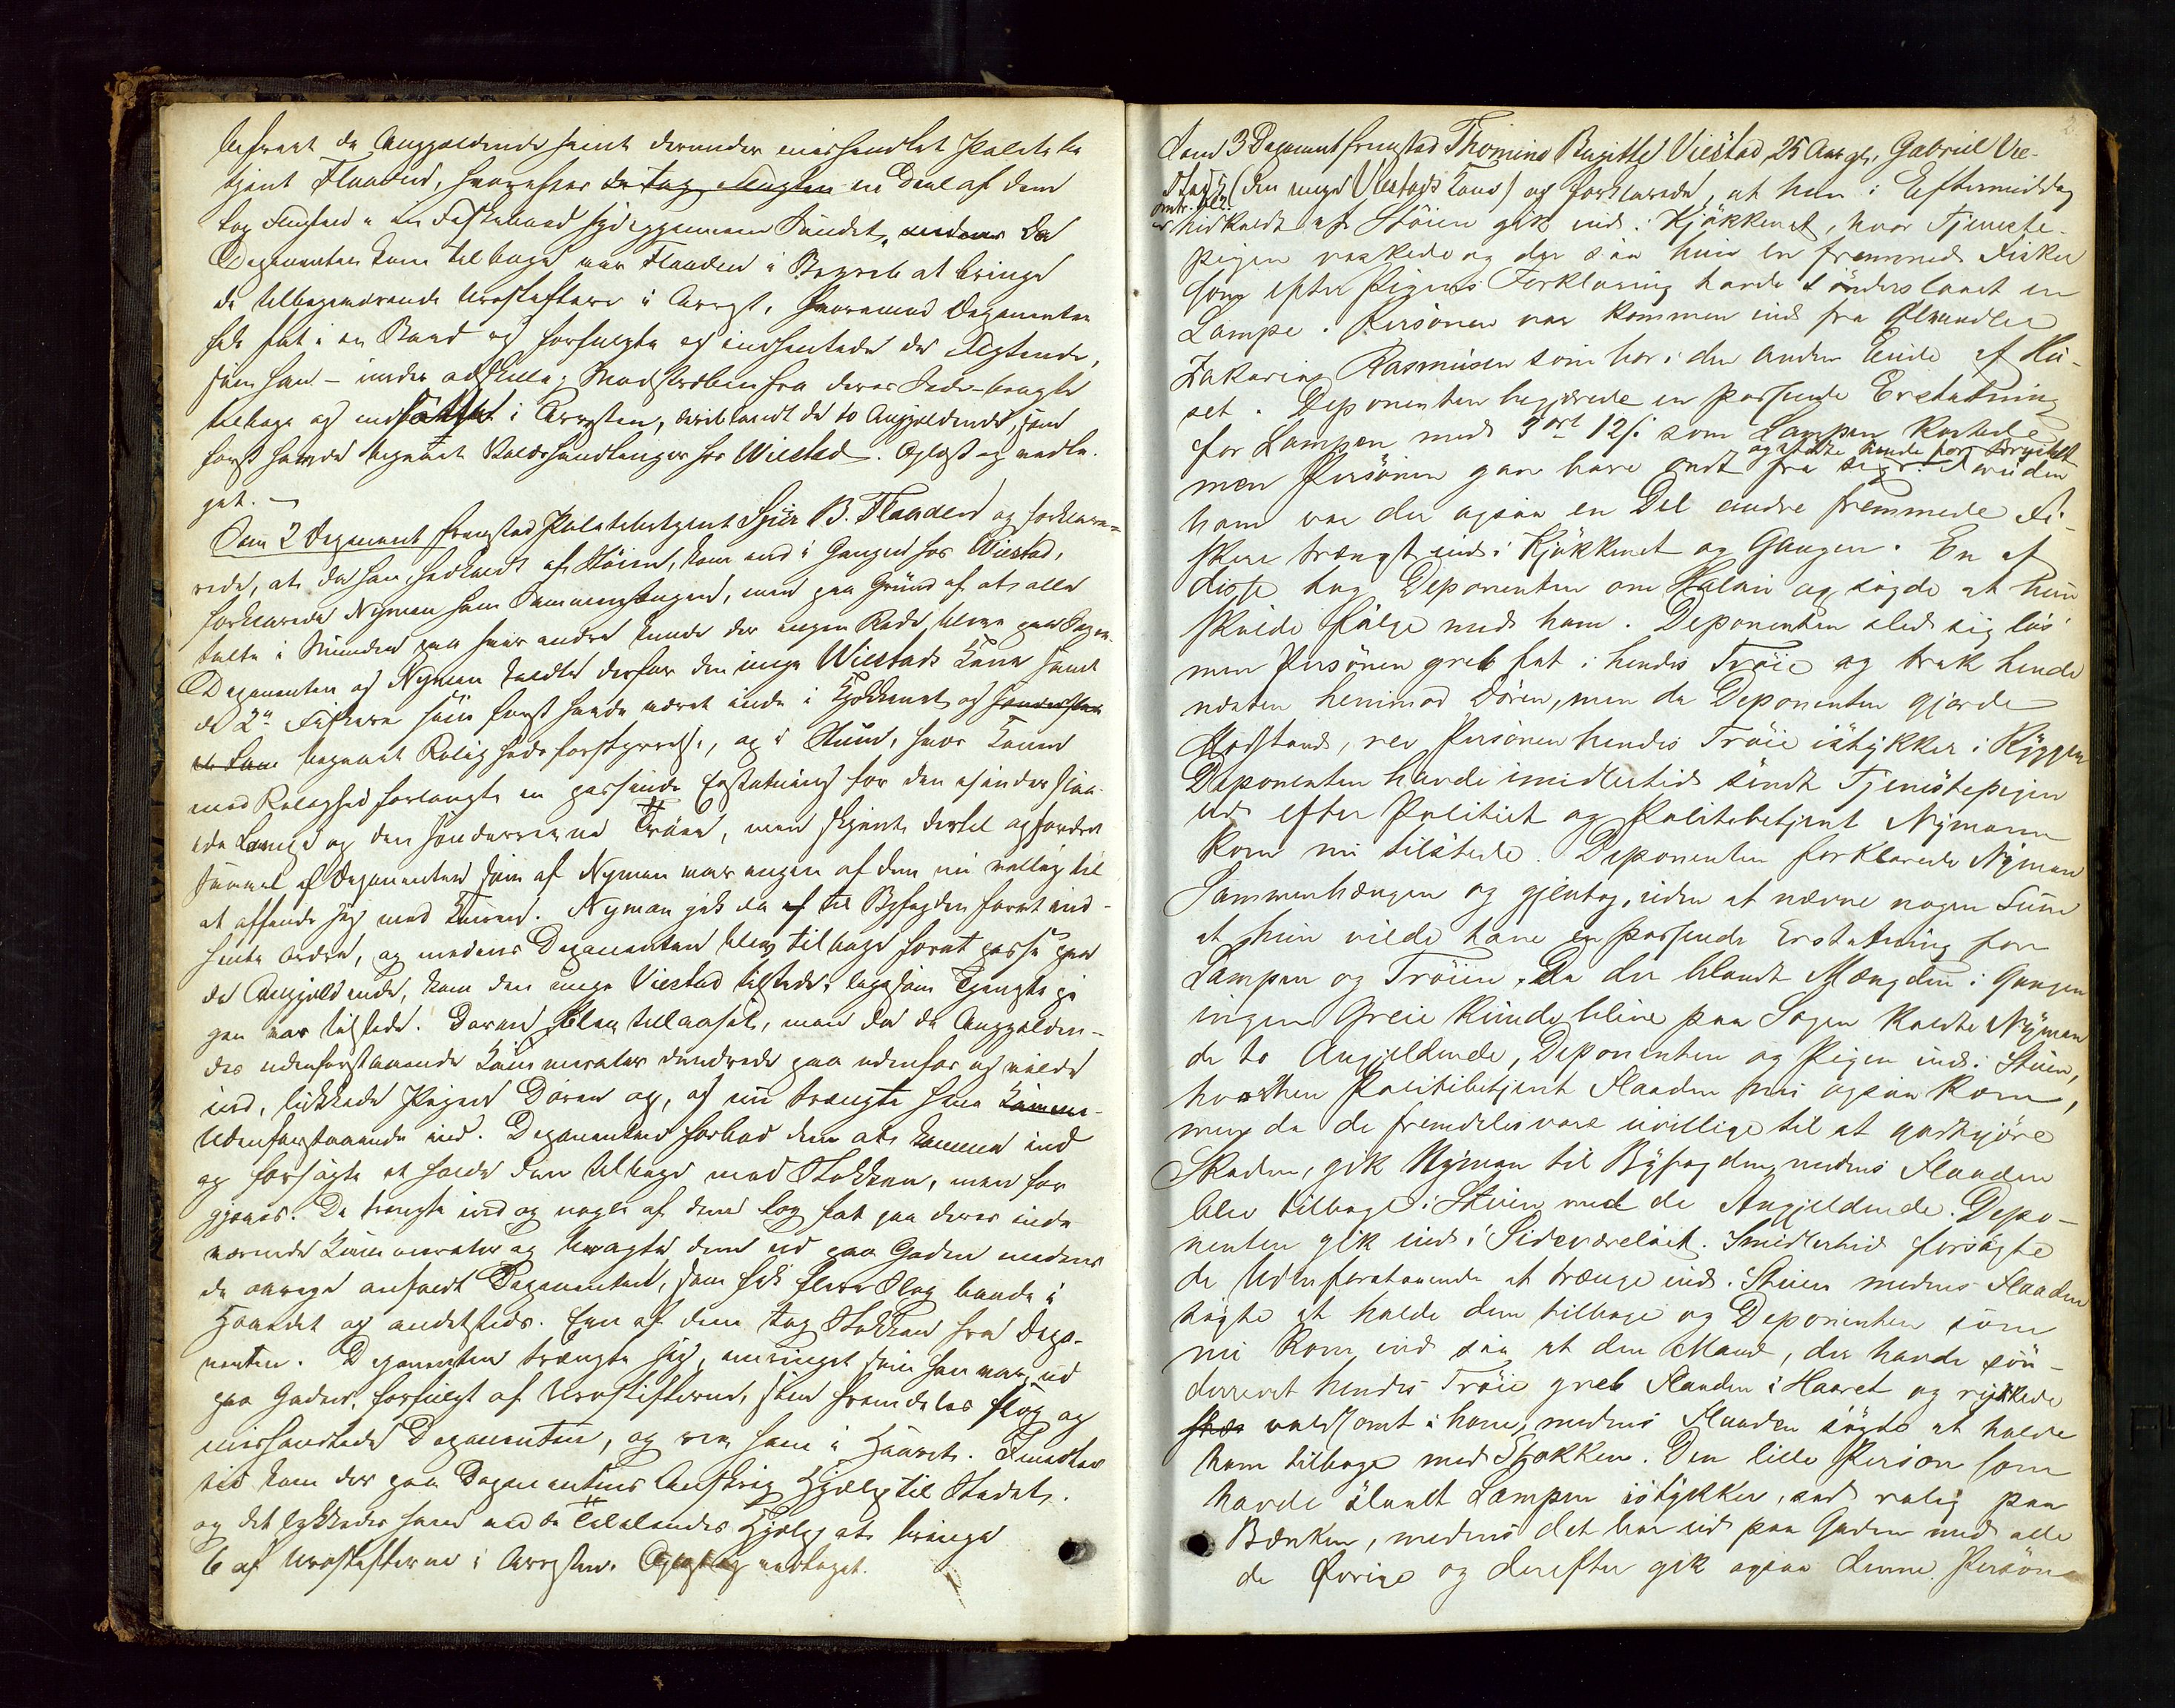 befriet de Angjældende samt derunder mishandlet Politibe
tjent Flaaden, hvorefter de tog Flugten en Deel af dem
tog Flugten i en Fiskebaad hjem gjennem Sundet, medens Da
Deponenten kom tilbage var Flaaden i Begreb at bringe
de tilbageværende Urostiftere i Arrest, hvorimod Deponenten
fik fat i en Baad og forfulgte og indhentede de Flygtende,
som han - under adskillig Modstræben fra deres Side - bragte
tilbage og indsatte i Arresten, deriblandt de to Angjældende, som
først havde begaaet Voldshandlinger hos Wiestad. Oplæst og vedta-
get. —
Som 2 Deponent fremstod Politibetjent Sjur B. Flaaden og forklare-
rede, at da han, hidkaldt af Støien, kom ind i Gangen hos Wiestad,
forklarede Nyman ham Sammenhængen, men paa Grund af at alle
talte i Munden paa hverandre kunde der ingen Rede blive paa Sagen.
Deponenten og Nyman kaldte derfor den unge Wiestads Kone samt
de 2 Fiskere som først havde været inde i Kjøkkenet og sønderslaa
et Lam begaaet Rolighedsforstyrrelse, op i Stuen, hvor Konen
med Rolighed forlangte en passende Erstatning for den ituslaa-
ede Lampe og den sønderrevne Trøie, men skjønt dertil opfordret
saavel af Deponenten som af Nyman var ingen af dem nu villig til
at affinde sig med Konen. Nyman gik da af til Byfogden foratt ind-
hente Ordre, og medens Deponenten blev tilbage forat passe paa
de Angjældende, kom den unge Viestad tilstede, ligesom Tjenestepi
gen var tilstede. Døren blev tillaaset, men da de Angjælden-
des udenforstaaende Kammerater dundrede paa udenfor og vilde
ind, lukkede Pigen Døren op, og nu trængte hine Kamme-
Udenforstaaende ind. Deponenten forbød dem at komme ind
og forsøgte at holde dem tilbage med Stokken, men for
gjæves. De trængte ind og nogle af dem tog fat paa deres inde
værende Kammerater og bragte dem ud paa Gaden medens
de øvrige anfaldt Deponenten, som fik flere Slag baade i
Hovedet og andetsteds. Een af dem tog Stokken fra Depo-
nenten. Deponenten trængte sig, omringet som han var, ud
paa Gaden, forfulgt af Urostifterne, som fremdeles slog og
mishandlede Deponenten, og rev ham i Haaret. Imidler
tid kom der paa Deponentens Anskrig Hjælp til Stedet,
og det lykkedes ham ved de Tililendes Hjælp at bringe
6 af Urostifterne i Arresten. Oplæst og vedtaget.
Som 3 Deponent fremstod Thomine Birgitte Viestad, 25 Aar gl., Gabriel Vie-
stads (den unge Viestads Kone) og forklarede, at hun i Eftermiddag
omtr. Kl 2
hidkaldt af Støien gik ind i Kjøkkenet, hvor Tjeneste-
pigen vaskede og der saa hun en fremmed Fisker
som efter Pigens Forklaring havde sønderslaaet en
Lampe. Personen var kommen ind fra
Zakarias Rasmusen som bor i den anden Ende af Hu-
set. Deponenten begjærede en passende Erstatning
for Lampen med 3 ort 12 s. som Lampen kostede
og støtte hende for Brystet
men Personen gav bare ondt fra sig. Foruden
ham var der ogsaa en Del andre fremmede Fi-
skere trængt ind i Kjøkkenet og Gangen. En af
disse tog Deponenten om Halsen og sagde at hun
skulde følge med ham. Deponenten sled sig løs
men Personen greb fat i hendes Trøie og trak hende
næsten henimod Døren, men da Deponenten gjorde
Modstand, rev Personen hendes Trøie istykker i Ryggen
Deponenten havde imidlertid sendt Tjenestepigen
ud efter Politiet og Politibetjent Nymann
kom nu tilstede. Deponenten forklarede Nyman
Sammenhængen og gjentog, uden at nævne nogen Sum
at hun vilde have en passende Erstatning for
Lampen og Trøien. Da der blandt Mængden i Gangen
ingen Greie kunde blive paa Sagen kaldte Nyman
de to Angjeldende, Deponenten og Pigen ind i Stuen,
hvorhen Politibetjent Flaaden nu ogsaa kom,
men da de fremdeles vare uvillige til at godtgjøre
Skaden, gik Nyman til Byfogden medens Flaaden
blev tilbage i Stuen med de Angjeldende. Depo-
nenten gik ind i Sideværelset. Imidlertid forsøgte
de Udenforstaaende at trænge ind i Stuen medens Flaaden
søgte at holde dem tilbage og Deponenten som
nu kom ind saa at den Mand, der havde søn-
derrevet hendes Trøie greb Flaaden i Haaret og rykkede
voldsomt i ham, medens Flaaden søgte at holde
ham tilbage med Stokken. Den lille Person som
havde slaaet Lampen istykker, sad rolig paa
Bænken, medens det bar ud paa Gaden med alle
de Øvrige og derefter gik ogsaa denne Person